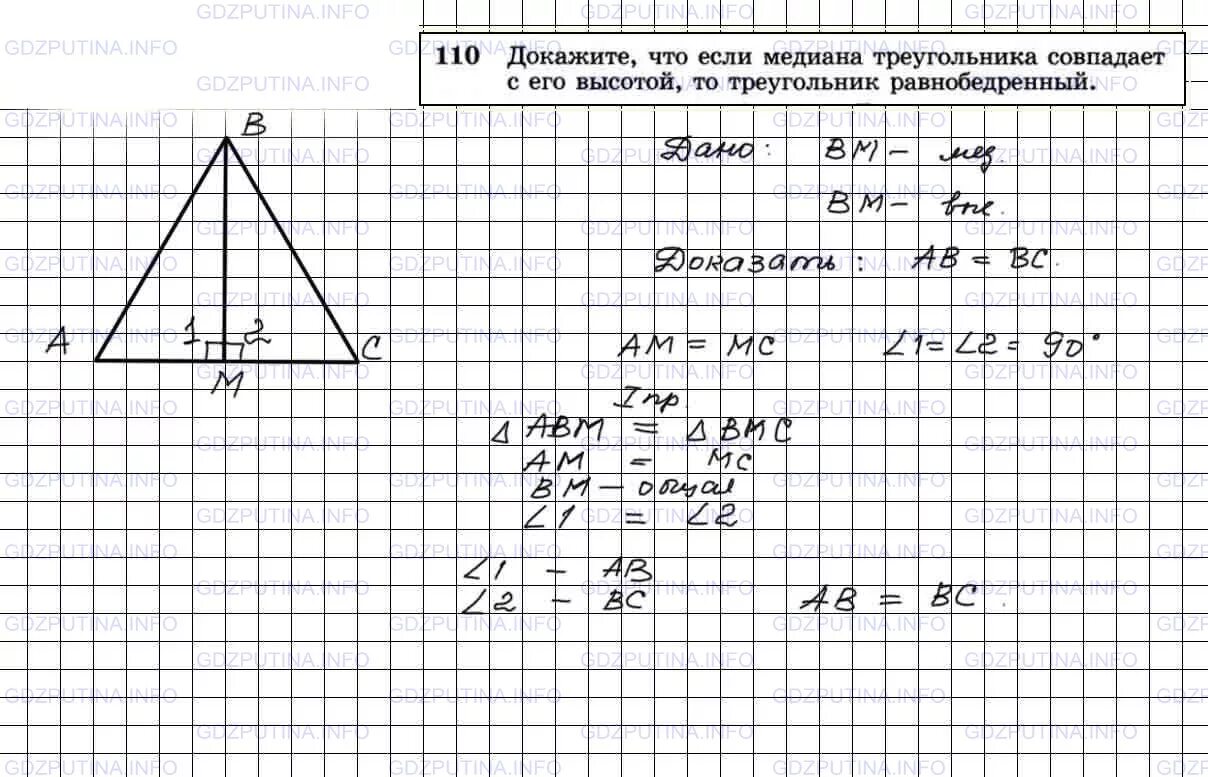 110 Докажите, что если медиана треугольника совпадает
с его высотой, то треугольник равнобедренный.
B
A 1 2 C
M
Дано: BM - мед.
BM - выс.
Доказать: AB = BC.
AM = MC ∠1 = ∠2 = 90°
I пр.
△ ABM = △ BMC
AM = MC
BM - общая
∠1 = ∠2
∠1 - AB
∠2 - BC AB = BC.
GDZPUTINA.INFO